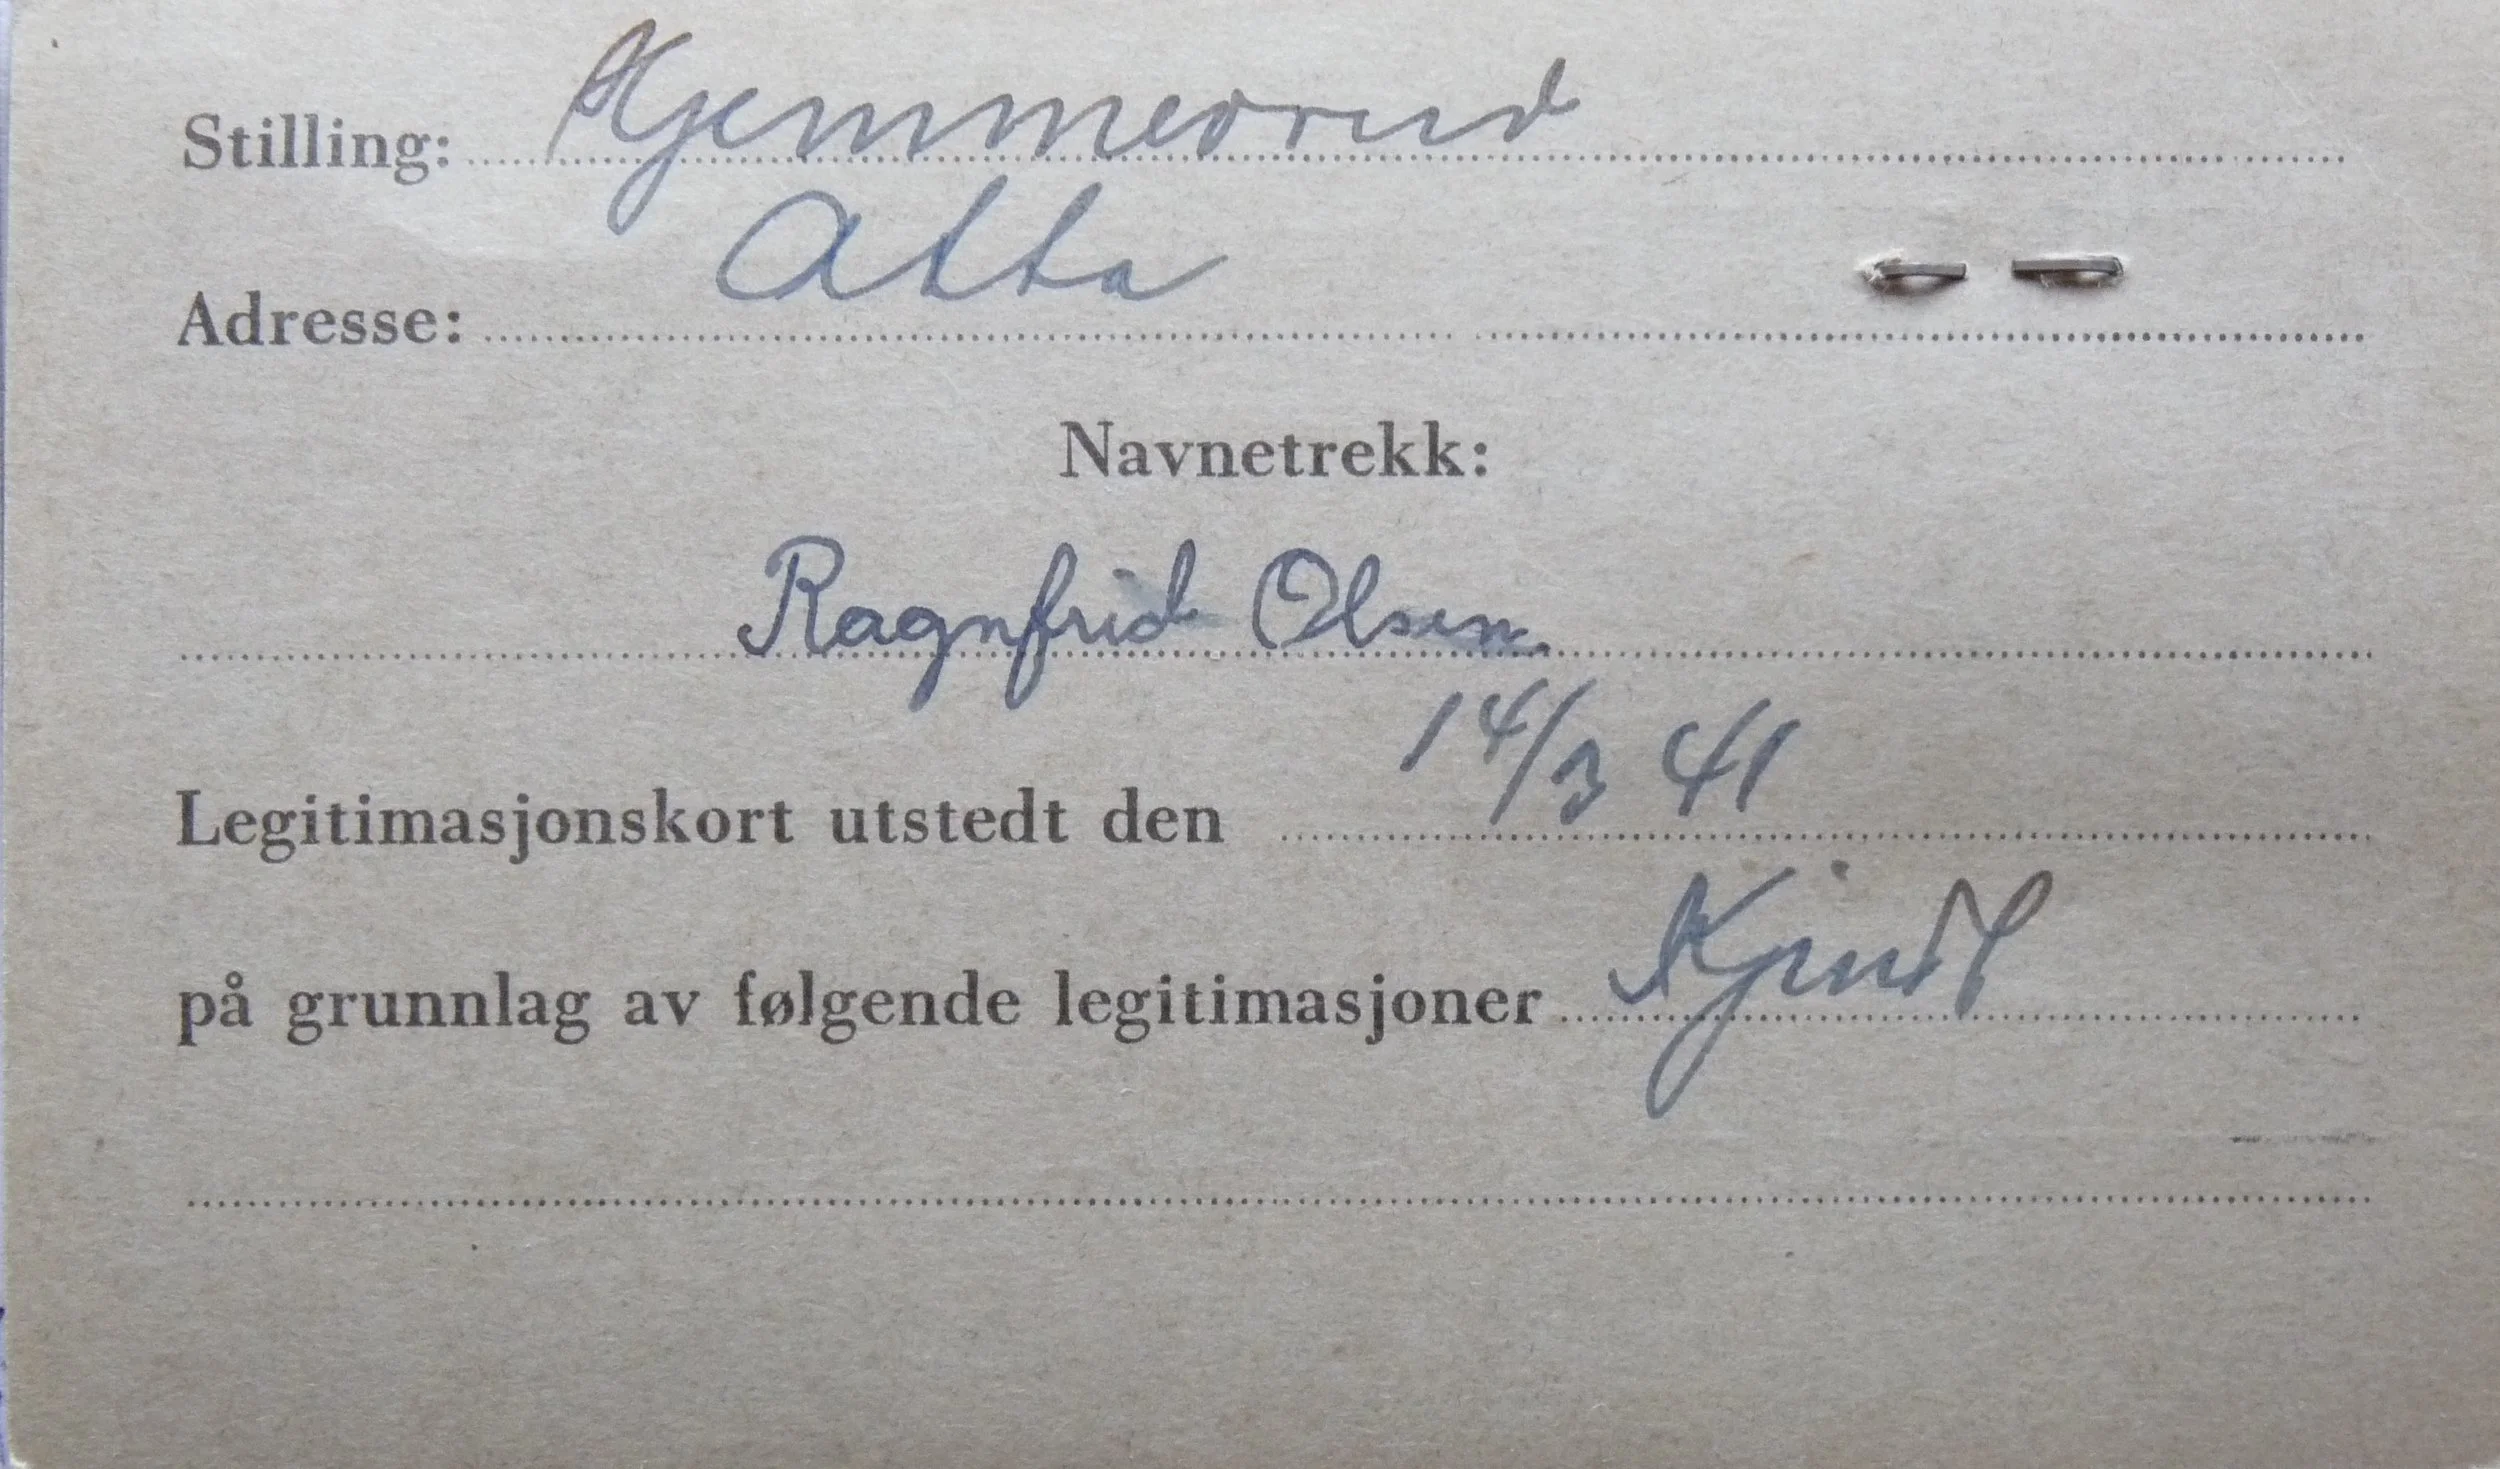 Stilling: Hjemmeværend
Adresse: Alta
Navnetrekk:
Ragnfrid Olsen
Legitimasjonskort utstedt den 14/3 41
på grunnlag av følgende legitimasjoner Kjent